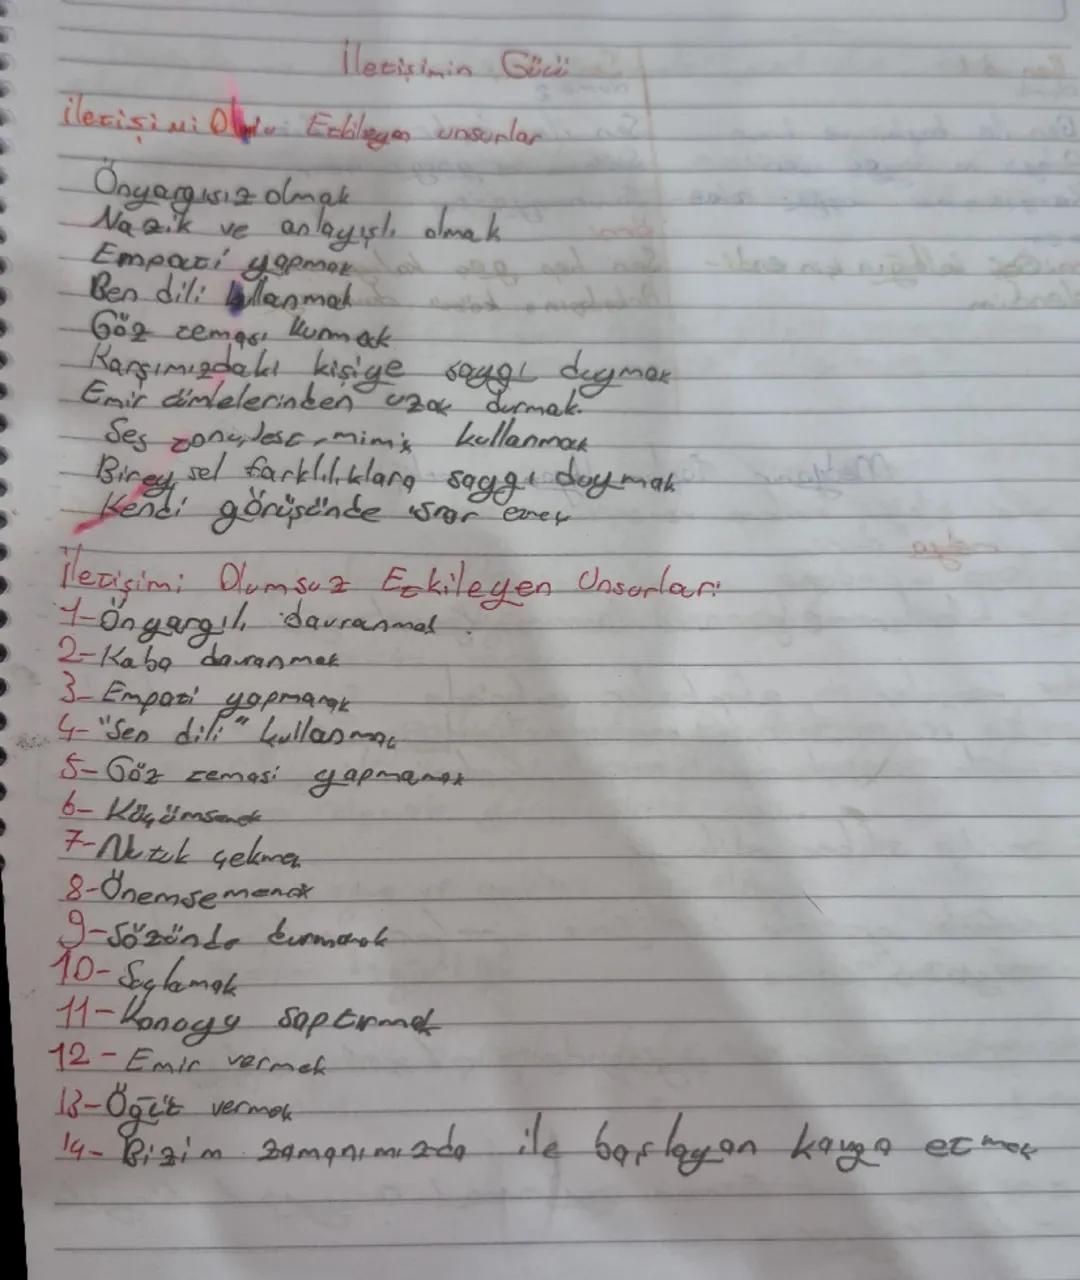 İletişimin Gücü
iletişimi Etkileyen unsurlar
Önyargısız olmak
Nazik ve anlayışlı olmak
Empati yapmak
Ben dili kullanmak
Göz teması kurmak
Karşımızdaki kişiye saygı duymak
Emir cümlelerinden uzak durmak.
Ses tonu, jest, mimik kullanmak
Bireysel farklılıklara saygı duymak
Kendi görüşünde ısrar etmek
İletişimi Olumsuz Etkileyen Unsurlar:
1-Önyargılı davranmak.
2-Kaba davranmak
3-Empati yapmamak
4-"Sen dili" kullanmak
5-Göz teması yapmamak
6-Küçümsemek
7-Nutuk çekmek
8-Önemsememek
9-Sözünde durmamak
10-Suçlamak
11-Konuyu saptırmak
12-Emir vermek
13-Öğüt vermek
14-Bizim zamanımızda ile başlayan kavga etmek